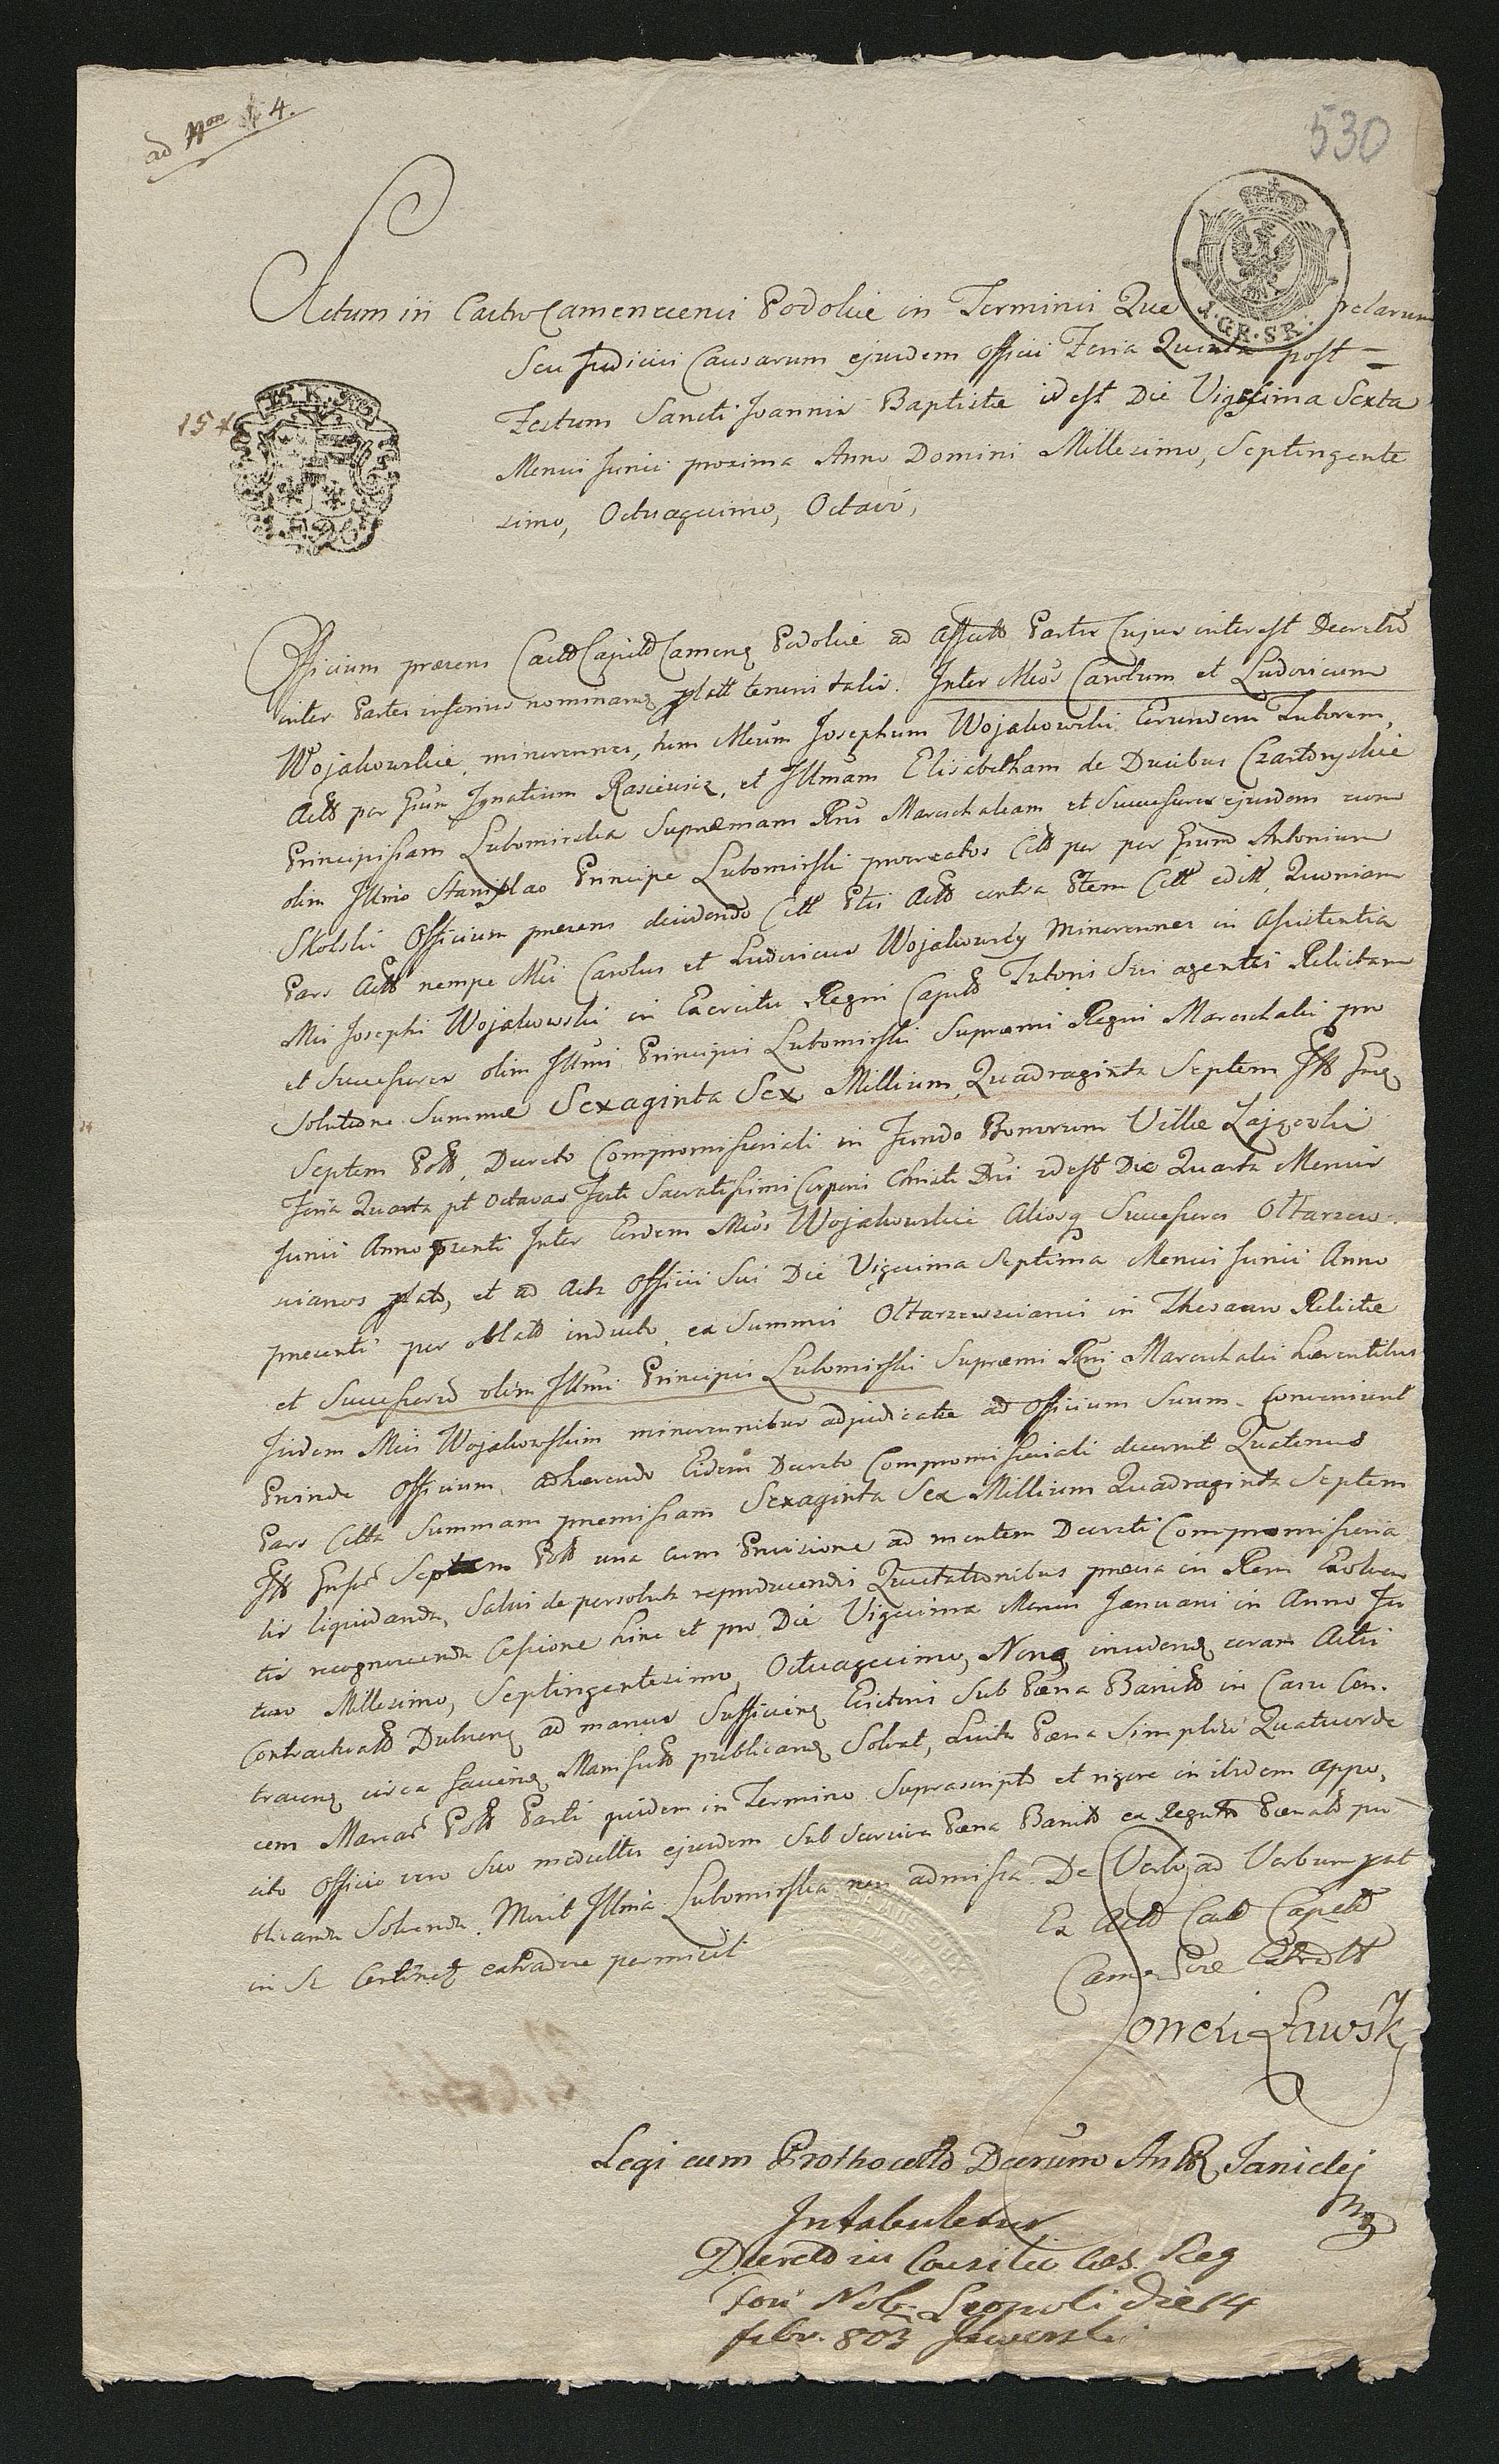 ad Nrum 4.
530
Actum in Castro Camenecensi Podoliæ in Terminis Que relarum
1. GR. SR.
Seu Judiciis Causarum ejusdem Officii Feria Quinta post
15 X
Festum Sancti Joannis Baptistæ id est Die Vigesima Sexta
Mensis Junii proxima Anno Domini Millesimo, Septingente
simo, Octuagesimo, Octavo,
Officium præsens Cast Capit Camenę Podoliæ ad Affect Partis Cujus interest Decret
inter Partes inferius nominanę plat tenoris talis. Inter Mcos Carolum et Ludovicum
Wojakowskie minorennes, tum Mcum Josephum Wojakowski Eorundem Tutorem,
Act per Gsum Ignatium Rasiewicz, et Illmam Elisabetham de Ducibus Czartoryskie
Principissam Lubomirska Supræmam Rni Mareschalcam et Successores ejusdem cum
olim Illmo Stanislao Principe Lubomirski procreatos Citt per per Gsum Antonium
Skolski Officium præsens decidendo Citt Ptis Act contra Ptem Citt editt, Quoniam
Pars Act nempe Mci Carolus et Ludovicus Wojakowscy Minorennes in Assistentia
Mci Josephi Wojakowski in Exercitu Regni Capit Tutoris Sui agentes Relictam
et Successores olim Illmi Principis Lubomirski Supremi Regni Mareschalci pro
Solutione Summæ Sexaginta Sex Millium, Quadraginta Septem Fll Grę
Septem Poll, Decreto Compromissoriali in Fundo Bonorum Villæ Zajączki
Feria Quarta pt Octavas Festi Sacratissimi Corporis Christi Dni id est Die Quarta Mensis
Junii Anno prznti Inter Eosdem Mcos Wojakowskie Aliosq Successores Ołtarzew-
scianos plato, et ad Acta Officii Sui Die Vigesima Septima Mensis Junii Anno
præsenti per oblat inducto, ex Summis Ołtarzewscianis in Thesauro Relictæ
et Successorum olim Illmi Principis Lubomirski Supremi Rni Mareschalci hærentibus
Iisdem Mcis Wojakowskim minorennibus adjudicatæ ad Officium Suum convenirent
Proinde Officium, adhærendo Eidem Decreto Compromissoriali decernit Quatenus
Pars Citta Summam præmissam Sexaginta Sex Millium Quadraginta Septem
Fll Grosr Septem Poll una cum Provisione ad mentem Decreti Compromissoria
lis liquidanda, Salvis de persoluta reproducendis Quietationibus prævia in Rem Exolven
tis recognoscenda Cessione hinc et pro Die Vigesima Mensis Januarii in Anno Fu
turo Millesimo, Septingentesimo, Octuagesimo, Nonę incidenę coram Actis
Contractuald Dubnenę ad manus Sufficienę Evictoris Sub Pæna Banitd in Casu Con-
travenę circa facienę Manifestd publicanę Solvat, Luita Pæna Simplici Quatuorde
cem Marcar Poll Parti quidem in Termino Suprascripto et rigore in ibidem appo,
sito Officio vero Suo multas ejusdem Sub Severiori Pæna Banitd ex Regestr Pænald pu-
blicanda Solvenda. Motit Illma Lubomirska non admissa. De Verbo ad Verbum prt
in Se Continet extradere permisit
Ex Actd Castd Capitd
Camę Podlæ Extradtt
Legi cum Prothocoltd Decrtum AntR Janicki
mp
Intabuletur
Decretd in Consilio Cæs. Reg
Fori Nob. Leopoli die 14
febr. 803 Jaworski